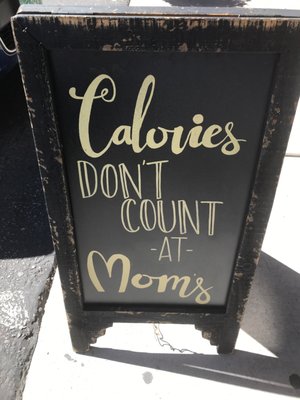 Calories
DON'T
COUNT
-AT-
Moms